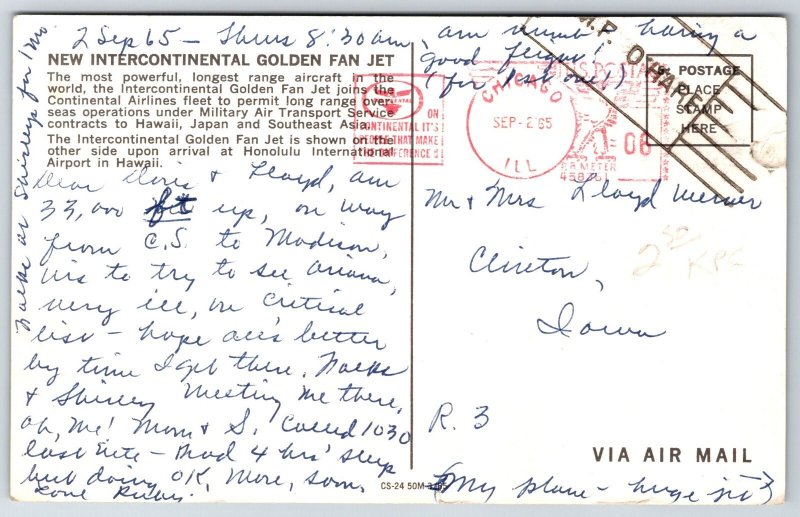 2 Sep 65 - Thurs 8:30 am,
am numb & having a
good  !
(for 1st one!)
NEW INTERCONTINENTAL GOLDEN FAN JET
The most powerful, longest range aircraft in the
world, the Intercontinental Golden Fan Jet joins the
Continental Airlines fleet to permit long range over-
seas operations under Military Air Transport Service
contracts to Hawaii, Japan and Southeast Asia.
The Intercontinental Golden Fan Jet is shown on the
other side upon arrival at Honolulu International
Airport in Hawaii.
ON
CONTINENTAL IT'S
PEOPLE THAT MAKE
DIFFERENCE
CHICAGO
SEP-2'65
ILL
U.S. POSTAGE
06
P.B. METER
A.M.F. O'HARE
POSTAGE
PLACE
STAMP
HERE
Dear Doris & Lloyd, am
33,000 ft up, on way
from C.S. to Madison,
Wis to try to see Oriana,
very ill, on critical
list - hope she's better
by time I get there,
& Shirley meeting me there,
oh, me! Mom & S. called 1030
last nite - had 4 hrs' sleep
but doing OK. More, soon.
Love
at Shirleys for 1 mo
Mr & Mrs Lloyd Werner
Clinton,
Iowa
R. 3
VIA AIR MAIL
CS-24 50M
(My plane - huge jet)